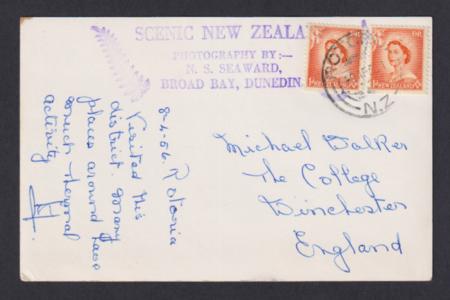 SCENIC NEW ZEALA
PHOTOGRAPHY BY:—
N. S. SEAWARD,
BROAD BAY, DUNEDIN.
N.Z
8-4-56. Rotorua
Visited this
district. Many
places around have
much thermal
activity
Michael Walker
The College
Winchester
England